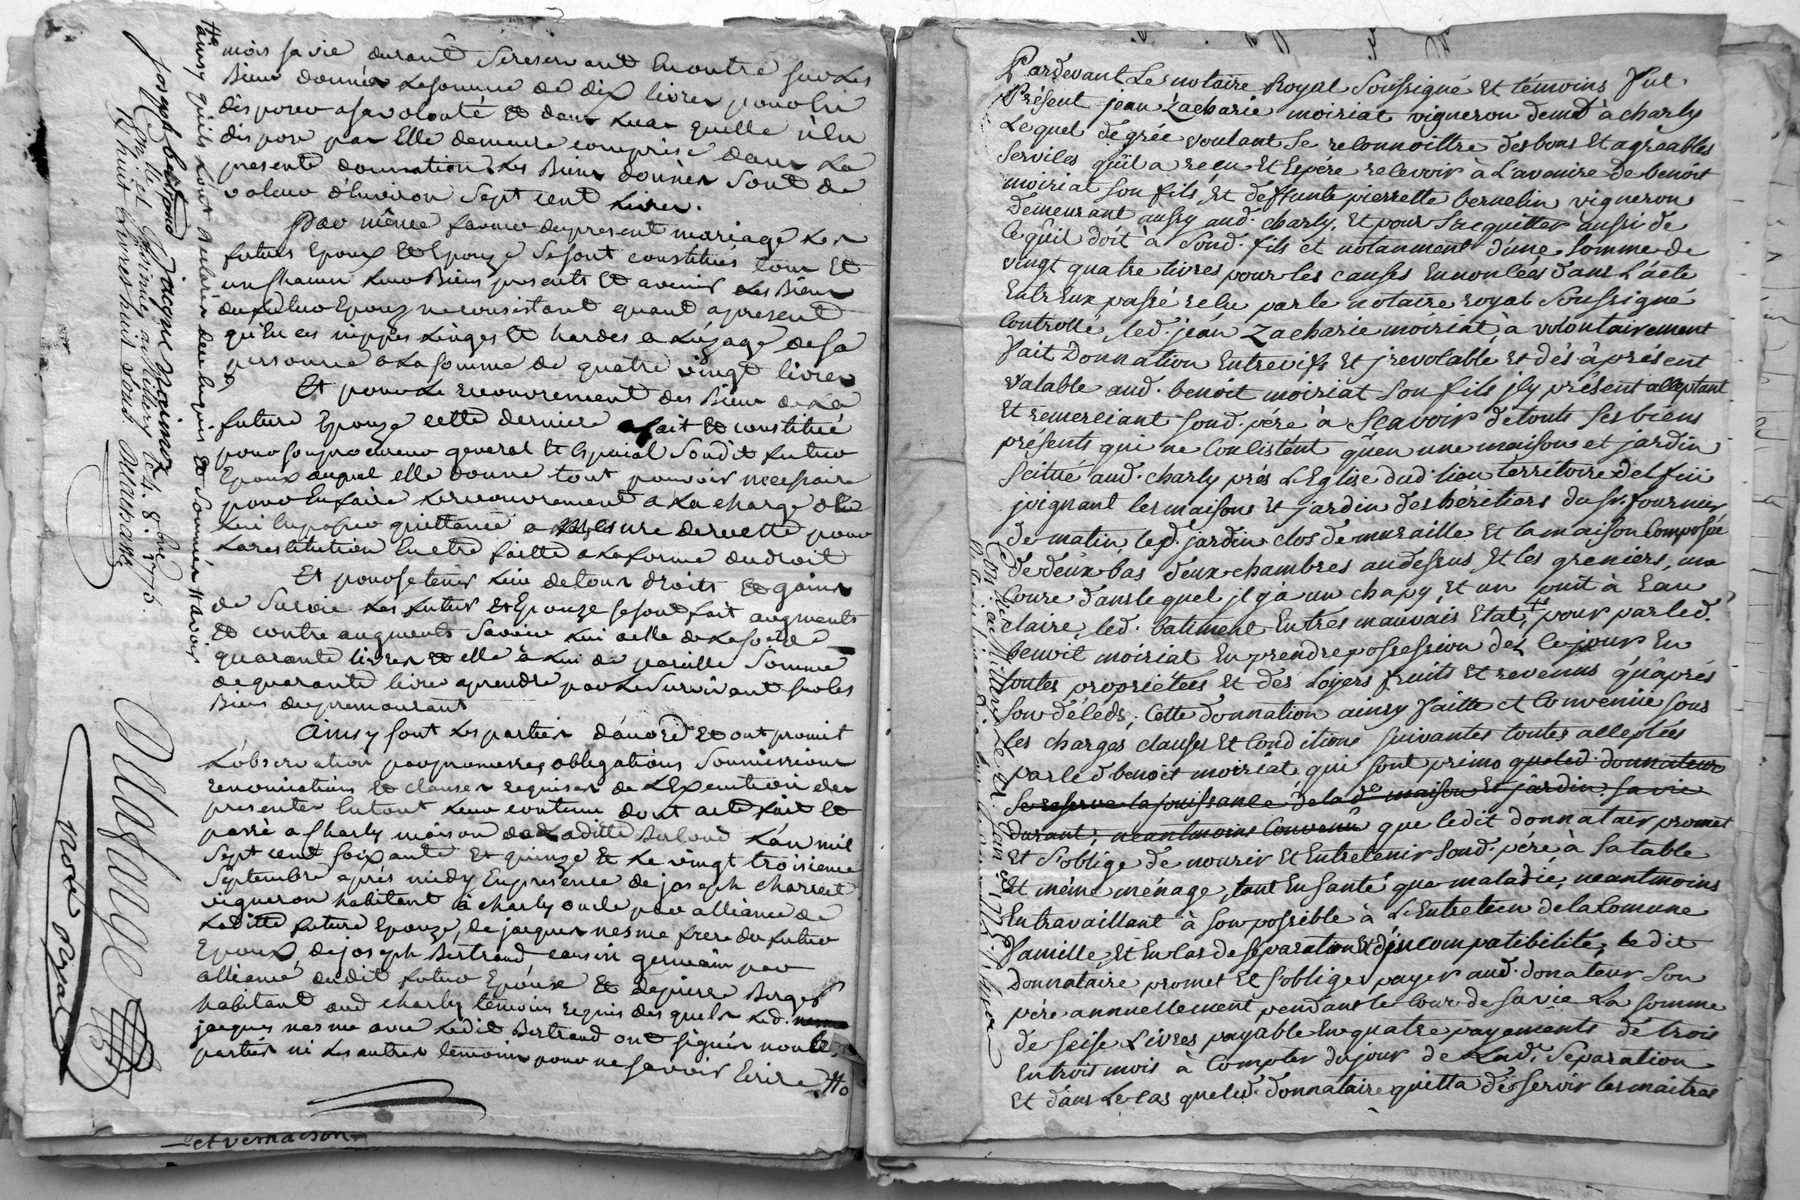 mois sa vie durant se reservant En outre sur Les
Biens donnés La somme de dix livres pour En
disposer a sa volonté Et dans Le cas quelle n'En
dispose pas Elle demeure comprise dans La
presente donnation. Les Biens donnés sont de
valeur d'Environ Sept cent Livres.
Par même faveur du present mariage Les
futurs Epoux Et Epouze se sont constitués tous Et
un chacun Leurs Biens presents Et avenir Les Biens
du futur Epoux ne consistant quant apresent
qu'En ses nippes Linges Et hardes a L'uzage de sa
personne a La somme de quatre vingt livres
Et pour Le recouvrement des Biens de La
future Epouze cette derniere a fait Et constitué
pour son procureur general Et special Sondit futur
Epoux auquel elle donne tout pouvoir necessaire
pour En faire Le recouvrement a La charge de
Lui En passer quittance a mesure de recette pour
La restitution En etre faitte a La forme du droit
Et pour se tenir Lieu de tous droits Et gains
de Survie Les futurs Et Epouze se sont fait augments
Et contre augments Savoir Lui a elle de La somme
quarante livres Et elle à Lui de pareille Somme
de quarante livre a prendre par Le Survivant sur les
Biens du premourant
Ainsy sont Les parties d'acord Et ont promit
L'observation par promesses, obligations Soumissions
renonciations Et clauses requises de L'Execution des
presentes Entout Leur contenu dont acte fait Et
passé a Charly maison de La ditte Baloud L'an mil
Sept cent soixante Et quinze Et Le vingt troisieme
Septembre après midy En presence de joseph charvet
vigneron habitant à charly oncle par alliance de
Laditte future Epouze, de jacques nesme frere du futur
Epoux, de joseph Bertrand cousin germain par
alliance dudit futur Epoux Et de pierre Berger
habitant aud charly temoins requis desquels Led.
jacques nesme avec Ledit Bertrand ont signés non les
parties ni Les autres temoins pour ne savoir Ecrire
ainsy qu'ils L'ont declarés de ce Enquis Et Sommés
joseph bertrand jacque Naime
Con.lé à Millery Le 4. 8.bre 1775
Et huit Livres huit sous.
Dussage
nore Royal
et vernaison
Pardevant Le notaire Royal Soussigné Et témoins Fut
Présent jean Zacharie moiriat vigneron dem.t à charly
Lequel de grée voulant Se reconnoittre des bons Et agréables
Services qu'il a reçu Et Espére recevoir à L'avenire de benoit
moiriat son fils, Et de ffunte pierrette bernelin vigneron
demeurant aussy aud. charly, Et pour S'acquitter aussi de
ce qu'il doit à Sond. fils et notanment d'une Somme de
vingt quatre Livres pour les causes Ennoncées dans L'acte
Entr Eux passé reçu par le notaire royal Soussigné
Controllé, led. jean Zacharie moiriat, à volontairement
Fait Donnation Entrevifs Et jrevocable, Et dès à présent
valable aud. benoit moiriat Son fils jcy présent acceptant
Et remerciant Sond. pére à Sçavoir de touts Ses biens
présents qui ne Consistent qu'en une maison et jardin
Scitué aud. charly prés L'Eglise dud. lieu territoire de
joignant les maisons Et jardin des heretiers du S.r fournier
de matin, led. jardin clos de muraille Et la maison Composée
de deux bas deux chambres au dessus Et les greniers, une
Coure dans lequel jl y à un chapy, Et un puit à Eau
claire, led. batiment En tres mauvais Etat, pour par led.
benoit moiriat En prendre possession dez ce jour En
toutes propriétées Et des Loyers fruits Et revenus qu'après
Son décéds, Cette donnation ainsy Faitte et Convenue sous
les charges clauses Et Conditions suivantes toutes acceptées
par le d. benoit moiriat, qui sont primo que led. donnateur
Se reserve la jouissance de la d.e maison Et jardin sa vie
durant, neantmoins Convenu que ledit donnataire promet
Et S'oblige de nourir Et Entretenir Sond. pére à Sa table
Et même ménage, tant En Santé que maladie, neantmoins
En travaillant à Son possible à L'Entretien de la Comune
Famille, Et En Cas de Séparation Et d'incompatibilité, le dit
donnataire promet Et S'oblige payer aud. donateur Son
pére annuellement pendant le Cour de Sa vie La Somme
de Seise Livres payable En quatre payements de trois
En trois mois à Compter du jour de Lad.e Séparation
Et dans Le cas que led. donnataire quitta de Servir les maitres